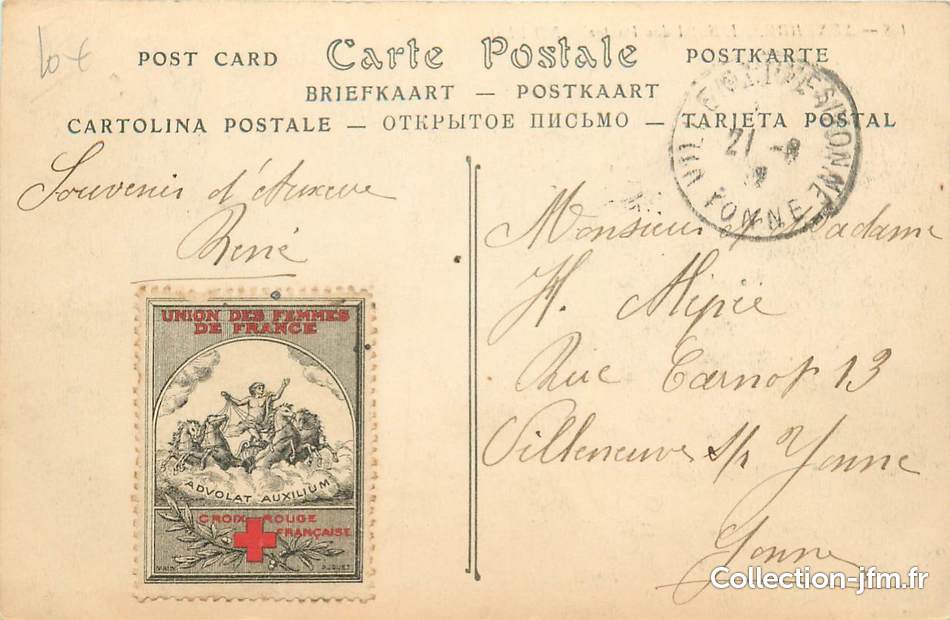 10 €
POST CARD Carte Postale POSTKARTE
BRIEFKAART — POSTKAART
CARTOLINA POSTALE — ОТКРЫТОЕ ПИСЬМО — TARJETA POSTAL
21 - 8
YONNE
Souvenir d'Auxerre
René
UNION DES FEMMES
DE FRANCE
ADVOLAT AUXILIUM
CROIX ROUGE
FRANÇAISE
Monsieur et Madame
H.
Rue Carnot 13
Villeneuve s/r Yonne
Yonne
Collection-jfm.fr